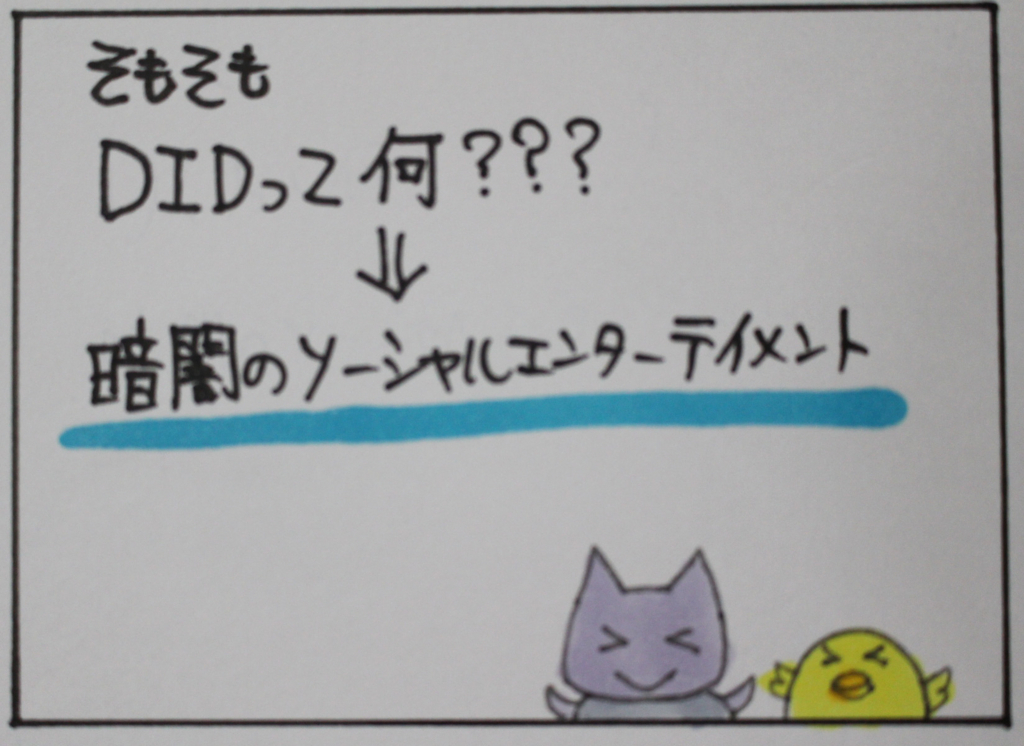 そもそも
DIDって何???
⇓
暗闇のソーシャルエンターテイメント